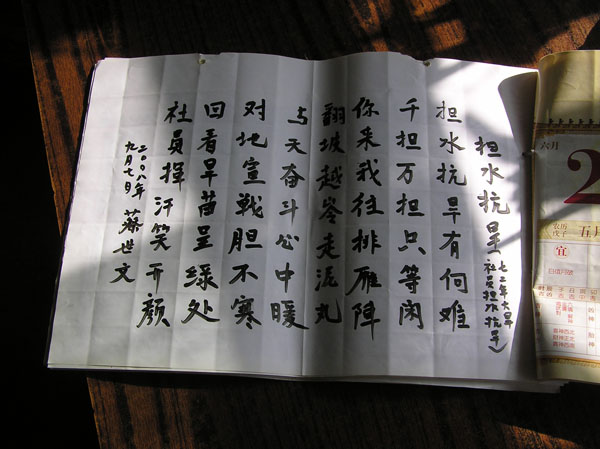 担水抗旱
七二年大旱
社员担水抗旱)
担水抗旱有何难
千担万担只等闲
你来我往排雁阵
翻坡越岑走泥丸
与天奋斗心中暖
对地宣战胆不寒
回看旱苗呈绿处
社员挥汗笑开颜
二〇〇八年
九月七日
蔡世文
六月
2
农历
戊子
五月
宜